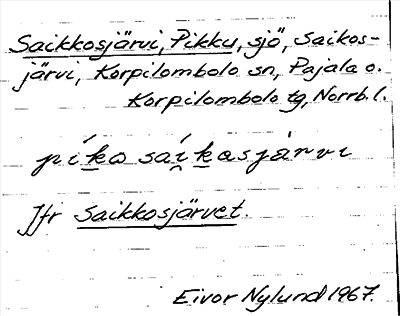 Saikkosjärvi, Pikku, sjö, Saikos-
järvi, Korpilombolo sn, Pajala o.
Korpilombolo tg, Norrb. l.
píko saíkosjärvi
Jfr Saikkosjärvet.
Eivor Nylund 1967.